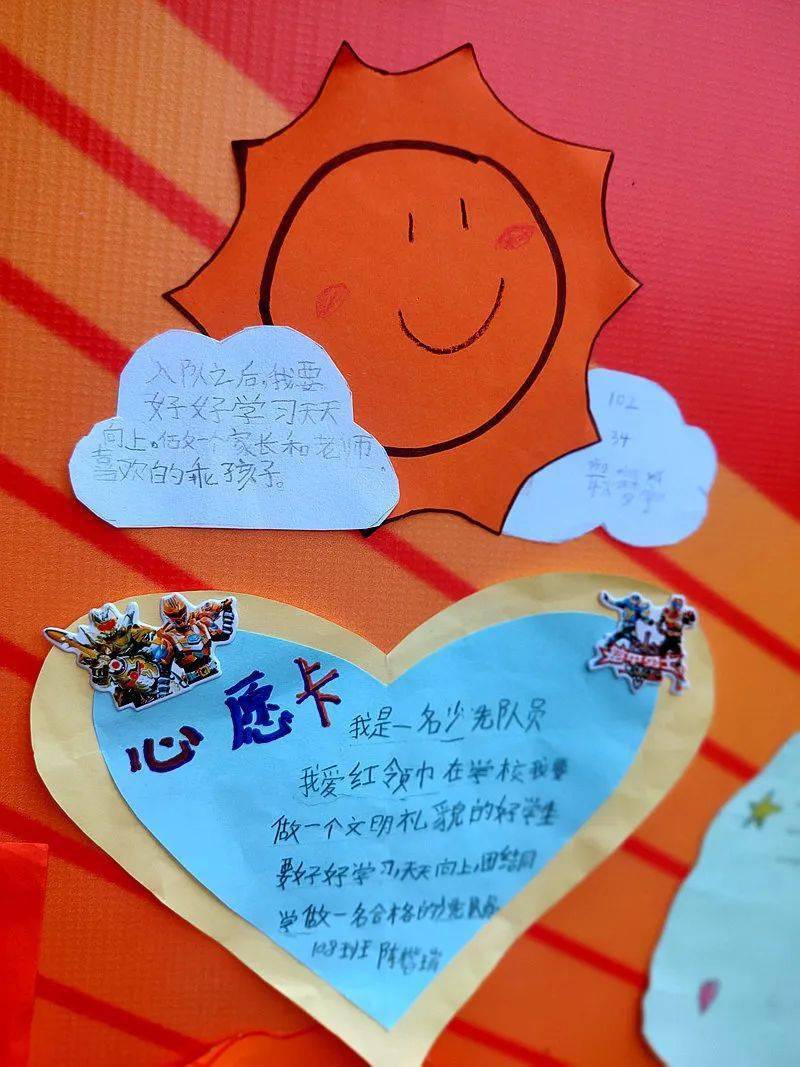 入队之后,我要
好好学习天天
向上。做一个家长和老师
喜欢的乖孩子。
102
34
心愿卡
我是一名少先队员
我爱红领巾在学校我要
做一个文明礼貌的好学生
要好好学习,天天向上,团结同
学做一名合格的少先队员
108班 陈